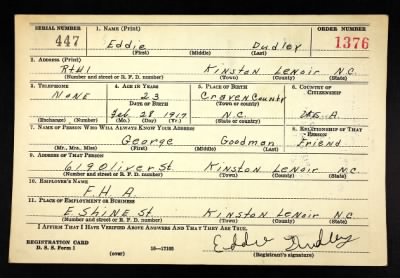 SERIAL NUMBER 1. NAME (Print) ORDER NUMBER
447 Eddie Dudley 1376
(First) (Middle) (Last)
2. ADDRESS (Print)
Rt#1 Kinston Lenoir N.C.
(Number and street or R. F. D. number) (Town) (County) (State)
3. TELEPHONE 4. AGE IN YEARS 5. PLACE OF BIRTH 6. COUNTRY OF CITIZENSHIP
None 23 Craven County
DATE OF BIRTH (Town or county)
Feb. 28 1917 N.C. U.S. A.
(Exchange) (Number) (Mo.) (Day) (Yr.) (State or country)
7. NAME OF PERSON WHO WILL ALWAYS KNOW YOUR ADDRESS 8. RELATIONSHIP OF THAT PERSON
George Goodman Friend
(Mr., Mrs., Miss) (First) (Middle) (Last)
9. ADDRESS OF THAT PERSON
619 Oliver St. Kinston Lenoir N.C.
(Number and street or R. F. D. number) (Town) (County) (State)
10. EMPLOYER'S NAME
F. H. A.
11. PLACE OF EMPLOYMENT OR BUSINESS
E. Shine St. Kinston Lenoir N.C.
(Number and street or R. F. D. number) (Town) (County) (State)
I AFFIRM THAT I HAVE VERIFIED ABOVE ANSWERS AND THAT THEY ARE TRUE.
REGISTRATION CARD Eddie Dudley
D. S. S. Form 1 (over) 16—17105 (Registrant's signature)